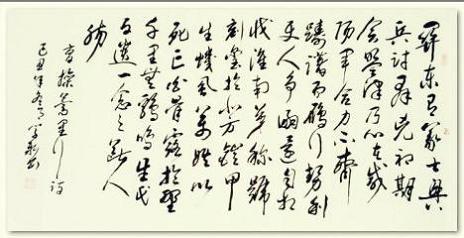 關東有義士興
兵討群凶初期
會盟津乃心在咸
陽軍合力不齊
躊躇而雁行勢利
使人爭嗣還自相
戕淮南弟稱號
刻璽於北方鎧甲
生蟣虱萬姓以
死亡白骨露於野
千里無雞鳴生民
百遺一念之斷人
腸
曹操蒿里行詩
己丑年冬月書